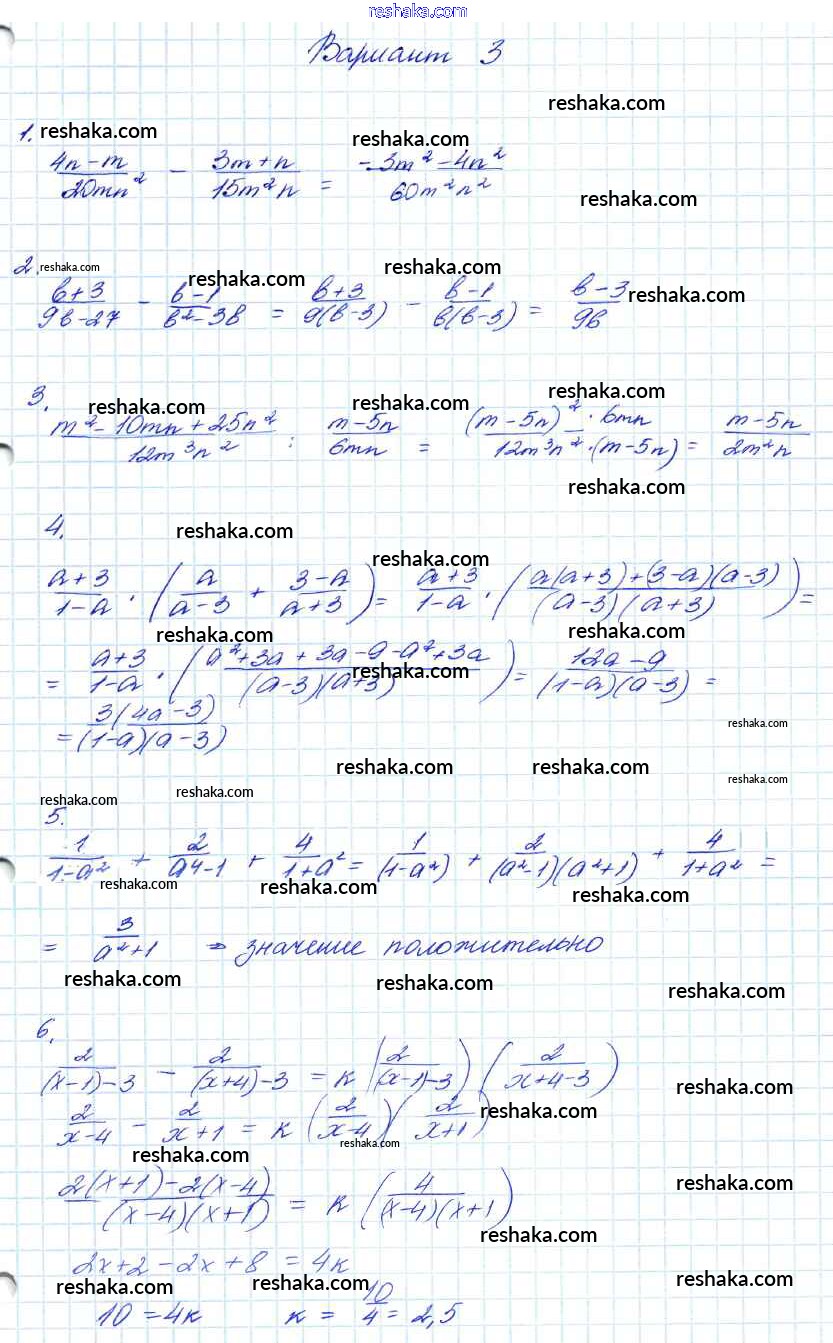 reshaka.com
Вариант 3
reshaka.com
1. reshaka.com reshaka.com
(4n-m)/(20mn²) - (3m+n)/(15m²n) = (-3m²-4n²)/(60m²n²)
reshaka.com
2. reshaka.com reshaka.com reshaka.com
(b+3)/(9b-27) - (b-1)/(b²-3b) = (b+3)/(9(b-3)) - (b-1)/(b(b-3)) = (b-3)/(9b) reshaka.com
3. reshaka.com reshaka.com reshaka.com
(m²-10mn+25n²)/(12m³n²) : (m-5n)/(6mn) = ((m-5n)²·6mn)/(12m³n²·(m-5n)) = (m-5n)/(2m²n)
reshaka.com
4. reshaka.com reshaka.com
(a+3)/(1-a) · (a/(a-3) + (3-a)/(a+3)) = (a+3)/(1-a) · ((a(a+3)+(3-a)(a-3))/((a-3)(a+3))) =
reshaka.com reshaka.com
= (a+3)/(1-a) · ((a²+3a+3a-9-a²+3a)/((a-3)(a+3))) = (12a-9)/((1-a)(a-3)) =
reshaka.com
= (3(4a-3))/((1-a)(a-3)) reshaka.com
reshaka.com reshaka.com reshaka.com
reshaka.com reshaka.com
5.
1/(1-a²) + 2/(a⁴-1) + 4/(1+a²) = 1/(1-a²) + 2/((a²-1)(a²+1)) + 4/(1+a²) =
reshaka.com reshaka.com reshaka.com
= 3/(a²+1) ⇒ значение положительно
reshaka.com reshaka.com reshaka.com
6.
2/((x-1)-3) - 2/((x+4)-3) = к (2/((x-1)-3)) (2/(x+4-3))
reshaka.com
2/(x-4) - 2/(x+1) = к (2/(x-4))(2/(x+1)) reshaka.com
reshaka.com reshaka.com
(2(x+1)-2(x-4))/((x-4)(x+1)) = к (4/((x-4)(x+1))) reshaka.com
reshaka.com
2x+2-2x+8 = 4к
reshaka.com reshaka.com reshaka.com
10 = 4к к = 10/4 = 2,5